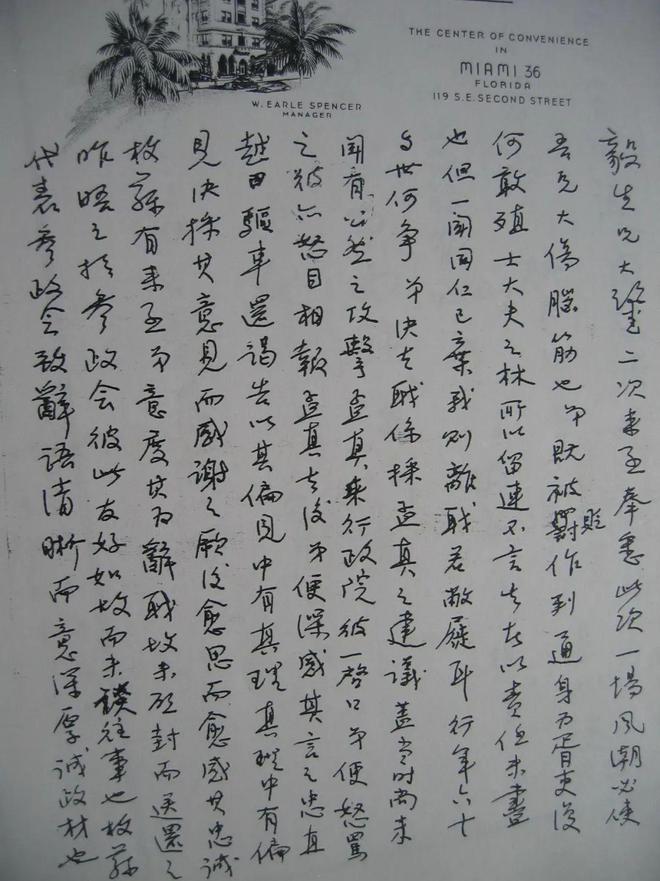 THE CENTER OF CONVENIENCE
IN
MIAMI 36
FLORIDA
119 S.E. SECOND STREET
W. EARLE SPENCER
MANAGER
毅生兄大鑒二次來函奉悉此次一場風潮必使
吾兄大傷腦筋也弟既被貶作到通身為胥吏後
何敢殖士大夫之林所以留連不言去者以責任未盡
也但一聞同仁已棄我則離職若敝屣耳行年六十
與世何爭弟決去職係採孟真之建議蓋當時尚未
聞有公然之攻擊孟真來行政院彼一啓口弟便怒罵
之彼亦怒目相報孟真去後弟便深感其言之忠直
越日驅車還謁告以其偏見中有真理真理中有偏
見決採其意見而感謝之厥後愈思而愈感其忠誠
枚蓀有來函弟意度其為辭職故未啓封而送還之
昨晤之於參政會彼此友好如故而未談往事也枚蓀
代表參政會致辭語清晰而意深厚誠政材也